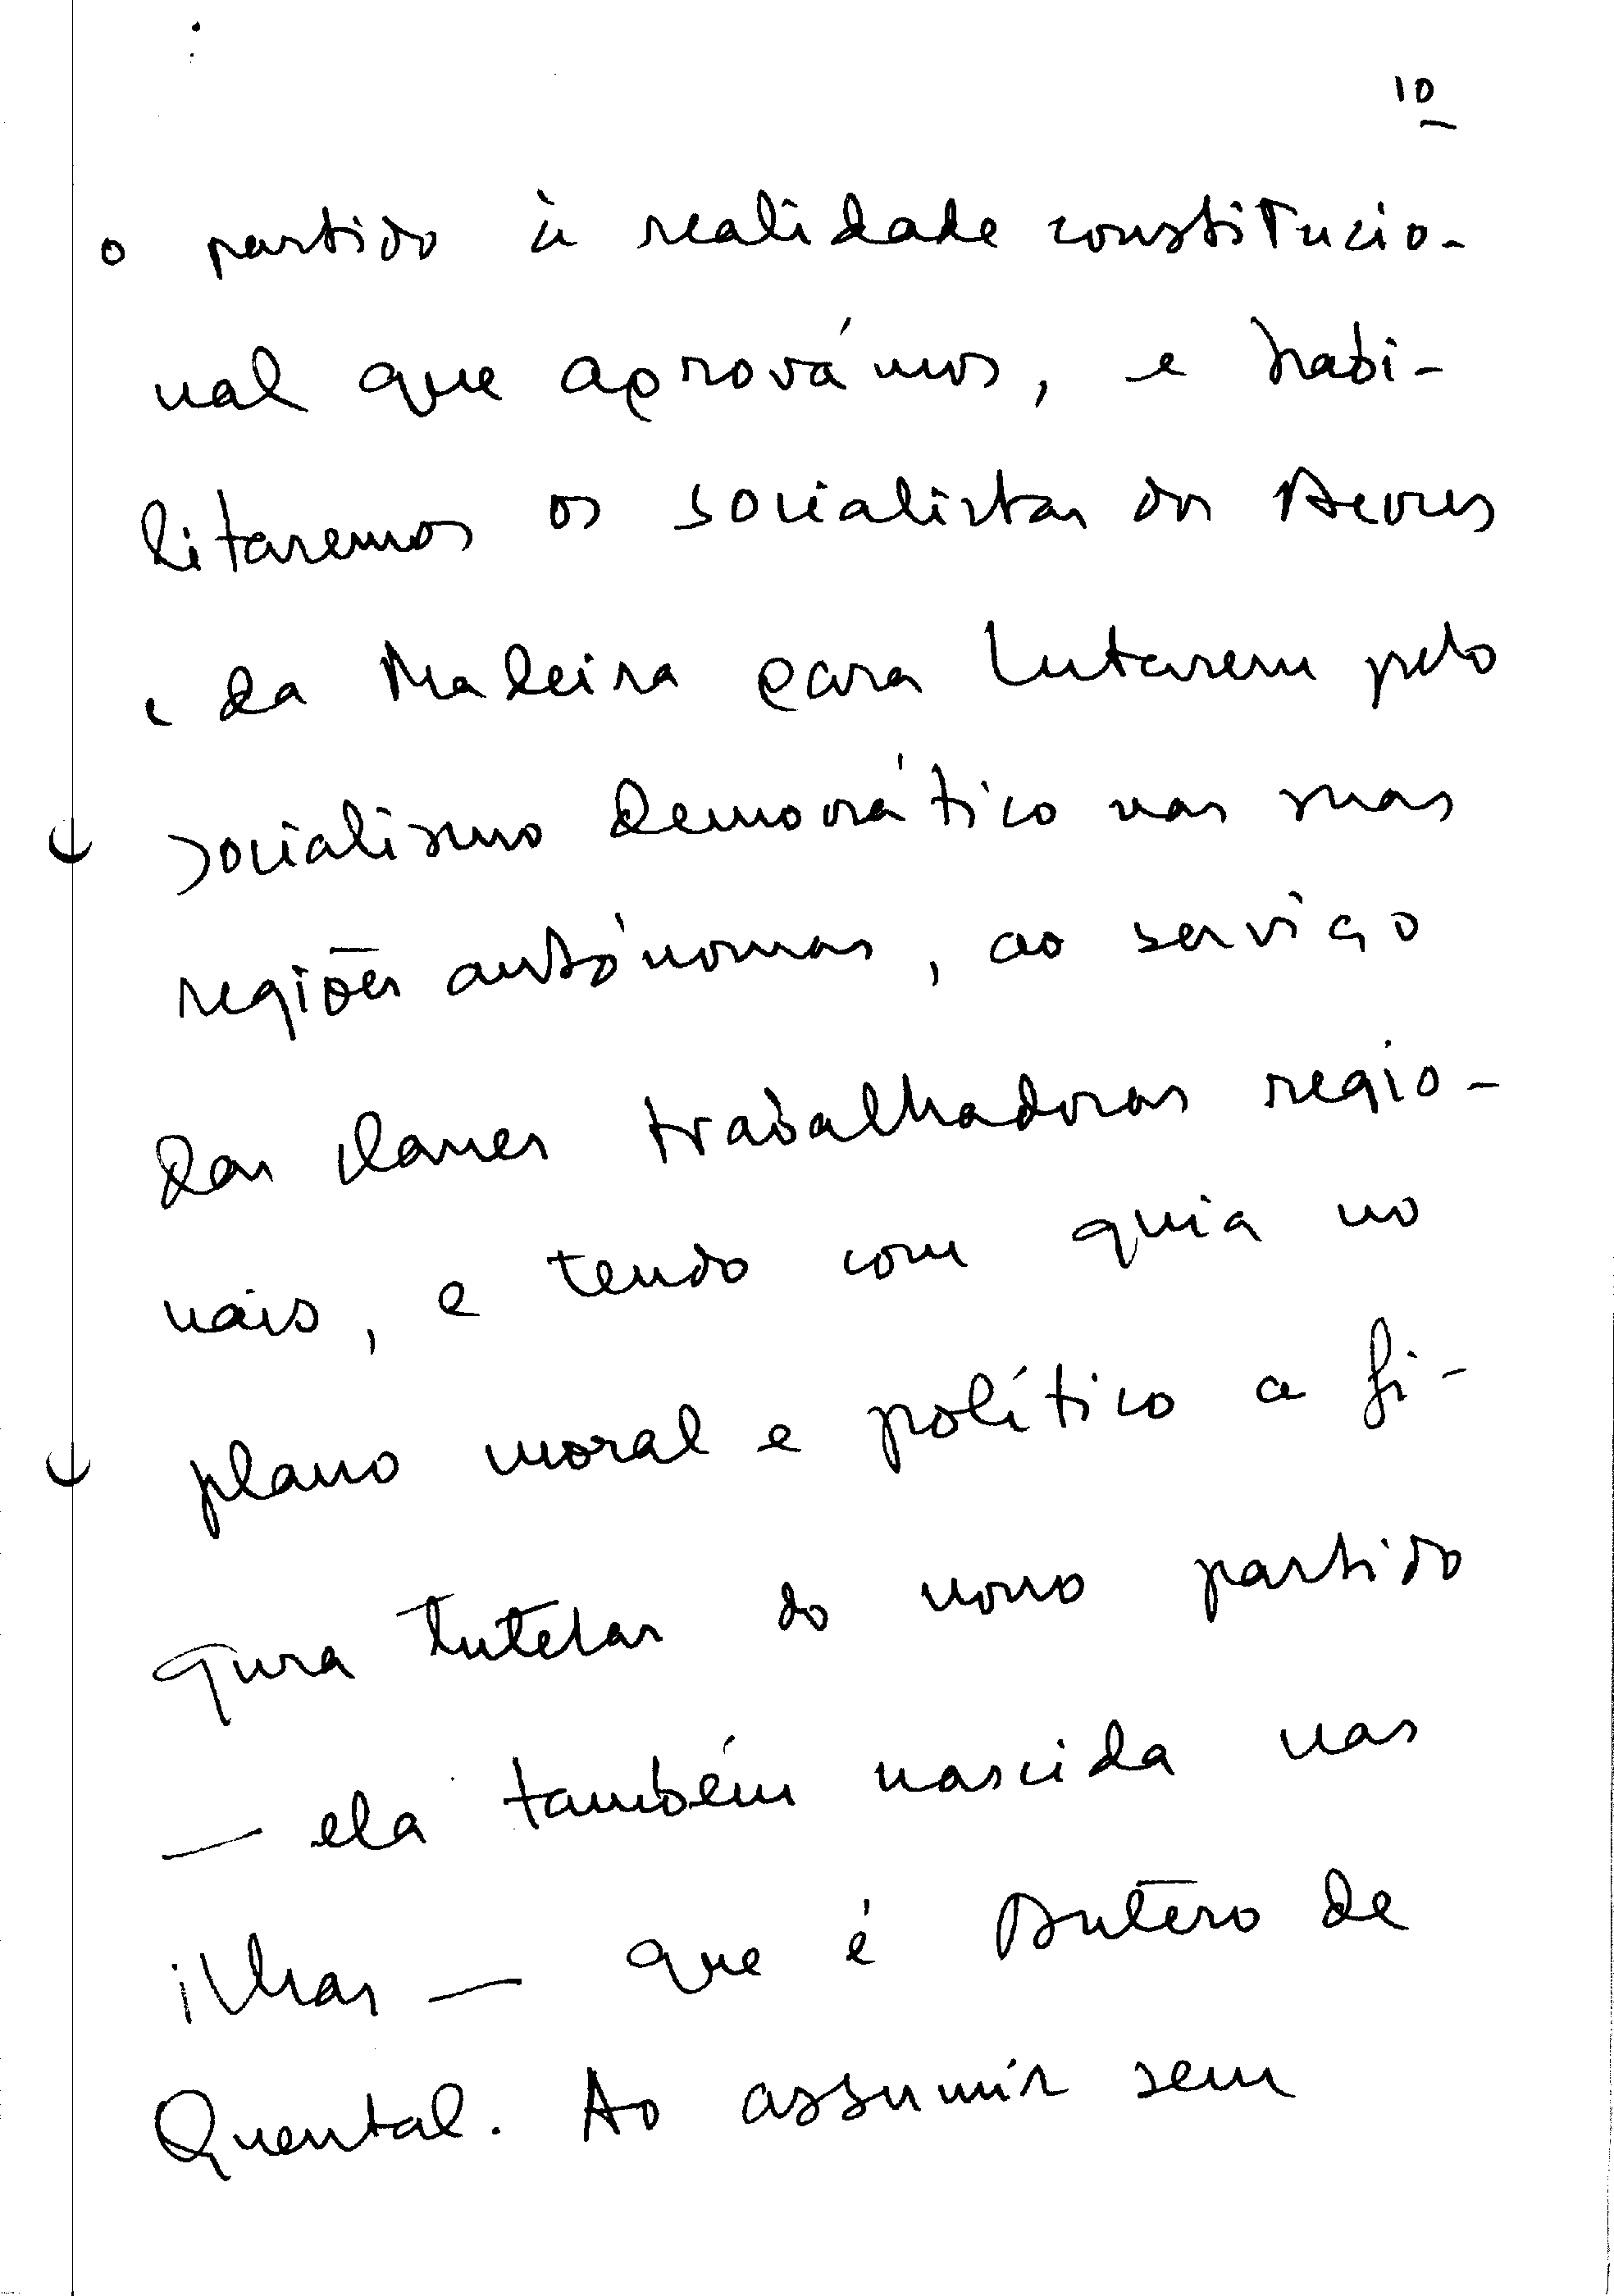 10
o partido à realidade constitucio-
nal que aprovámos, e habi-
litaremos os socialistas dos Açores
e da Madeira para lutarem pelo
socialismo democrático nas suas
regiões autónomas, ao serviço
das classes trabalhadoras regio-
nais, e tendo com guia no
plano moral e político a fi-
gura tutelar do nosso partido
— ela também nascida nas
ilhas — que é Antero de
Quental. Ao assumir sem